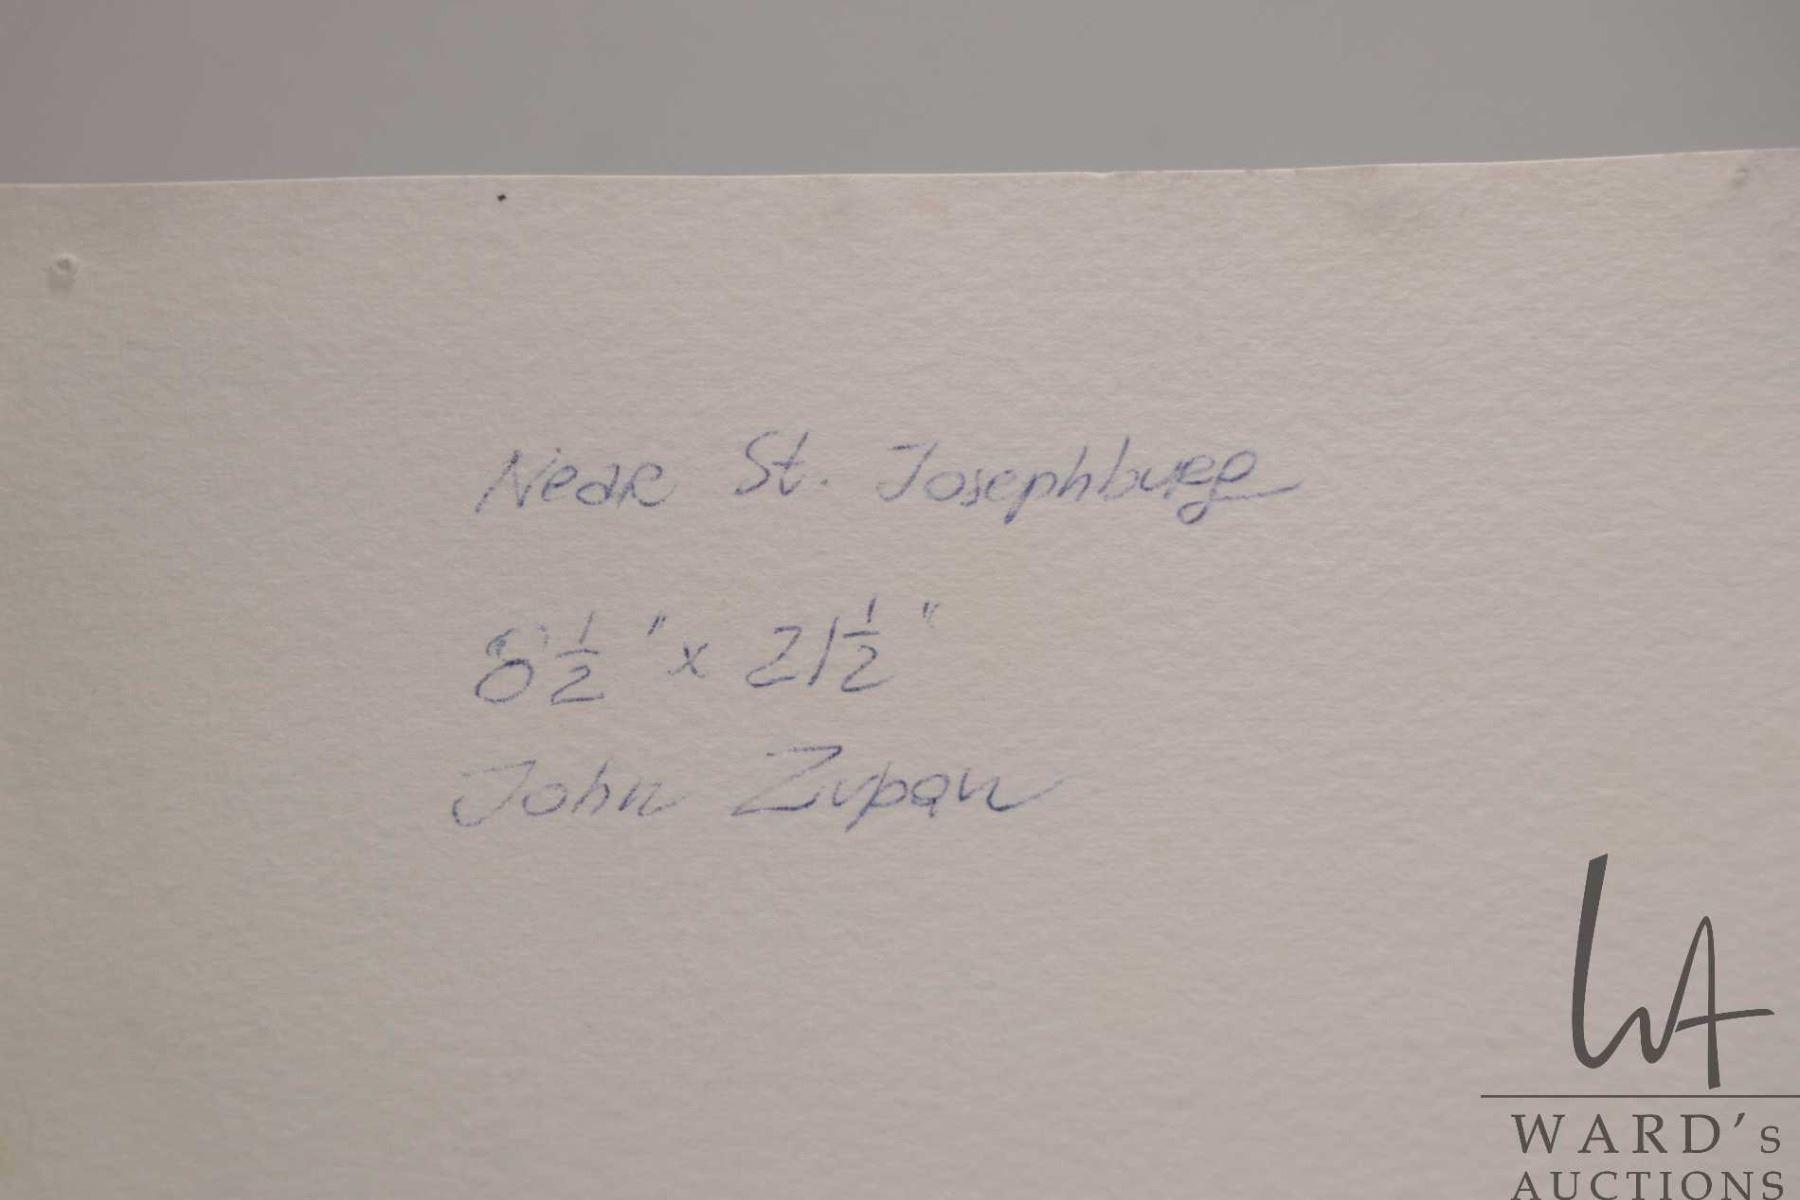 Near St. Josephburg
8 1/2" x 21 1/2"
John Zupan
WA
WARD's
AUCTIONS